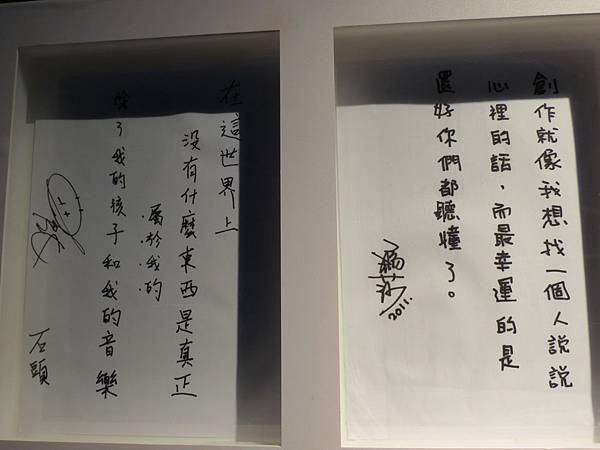 創作就像我想找一個人說說
心裡的話，而最幸運的是
還好你們都聽懂了。
瑪莎
2011.
在這世界上
沒有什麼東西是真正
屬於我的
除了我的孩子和我的音樂
石頭